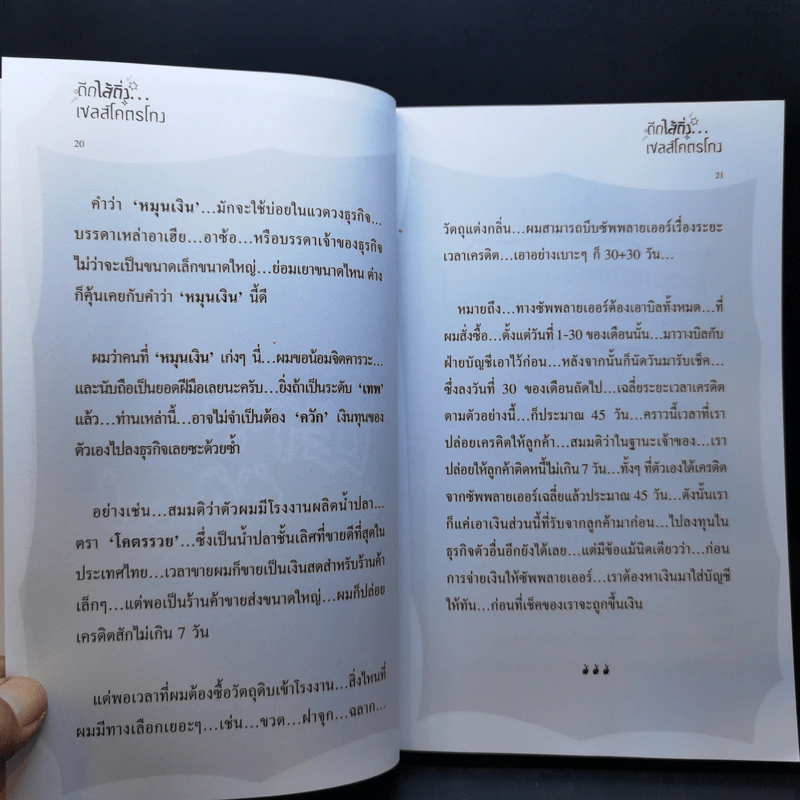 ถึกไส้ติ่ง...
เซลส์โคตรโกง
20
คำว่า ‘หมุนเงิน’...มักจะใช้บ่อยในแวดวงธุรกิจ...
บรรดาเหล่าอาเฮีย...อาซ้อ...หรือบรรดาเจ้าของธุรกิจ
ไม่ว่าจะเป็นขนาดเล็กขนาดใหญ่...ย่อมเยาขนาดไหน ต่าง
ก็คุ้นเคยกับคำว่า ‘หมุนเงิน’ นี้ดี
ผมว่าคนที่ ‘หมุนเงิน’ เก่งๆ นี้...ผมขอน้อมจิตคารวะ...
และนับถือเป็นยอดฝีมือเลยนะครับ...ยิ่งถ้าเป็นระดับ ‘เทพ’
แล้ว...ท่านเหล่านี้...อาจไม่จำเป็นต้อง ‘ควัก’ เงินทุนของ
ตัวเองไปลงธุรกิจเลยซะด้วยซ้ำ
อย่างเช่น...สมมติว่าตัวผมมีโรงงานผลิตน้ำปลา...
ตรา ‘โคตรรวย’...ซึ่งเป็นน้ำปลาชั้นเลิศที่ขายดีที่สุดใน
ประเทศไทย...เวลาขายผมก็ขายเป็นเงินสดสำหรับร้านค้า
เล็กๆ...แต่พอเป็นร้านค้าขายส่งขนาดใหญ่...ผมก็ปล่อย
เครดิตสักไม่เกิน 7 วัน
แต่พอเวลาที่ผมต้องซื้อวัตถุดิบเข้าโรงงาน...สิ่งไหนที่
ผมมีทางเลือกเยอะๆ...เช่น...ขวด...ฝาจุก...ฉลาก...
ถึกไส้ติ่ง...
เซลส์โคตรโกง
21
วัตถุแต่งกลิ่น...ผมสามารถบีบซัพพลายเออร์เรื่องระยะ
เวลาเครดิต...เอาอย่างเบาะๆ ก็ 30+30 วัน...
หมายถึง...ทางซัพพลายเออร์ต้องเอาบิลทั้งหมด...ที่
ผมสั่งซื้อ...ตั้งแต่วันที่ 1-30 ของเดือนนั้น...มาวางบิลกับ
ฝ่ายบัญชีเอาไว้ก่อน...หลังจากนั้นก็นัดวันมารับเช็ค...
ซึ่งลงวันที่ 30 ของเดือนถัดไป...เฉลี่ยระยะเวลาเครดิต
ตามตัวอย่างนี้...ก็ประมาณ 45 วัน...คราวนี้เวลาที่เรา
ปล่อยเครดิตให้ลูกค้า...สมมติว่าในฐานะเจ้าของ...เรา
ปล่อยให้ลูกค้าติดหนี้ไม่เกิน 7 วัน...ทั้งๆ ที่ตัวเองได้เครดิต
จากซัพพลายเออร์เฉลี่ยแล้วประมาณ 45 วัน...ดังนั้นเรา
ก็แค่เอาเงินส่วนนี้ที่รับจากลูกค้ามาก่อน...ไปลงทุนใน
ธุรกิจตัวอื่นอีกยังได้เลย...แต่มีข้อแม้นิดเดียวว่า...ก่อน
การจ่ายเงินให้ซัพพลายเออร์...เราต้องหาเงินมาใส่บัญชี
ให้ทัน...ก่อนที่เช็คของเราจะถูกขึ้นเงิน